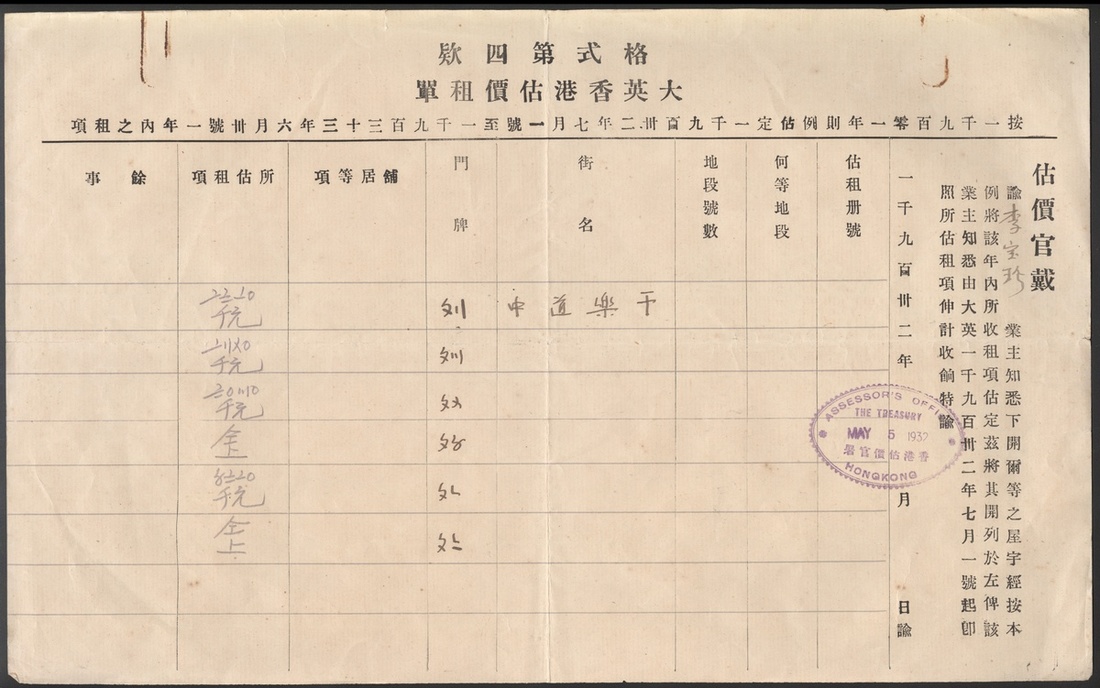 格式第四欵
大英香港估價租單
按一千九百零一年則例估定一千九百卅二年七月一號至一千九百三十三年六月卅號一年內之租項
估價官戴
諭李宝珍 業主知悉下開爾等之屋宇經按本
例將該年內所收租項估定茲將其開列於左俾該
業主知悉由大英一千九百卅二年七月一號起卽
照所估租項伸計收餉特諭
一千九百卅二年 月 日諭
ASSESSOR'S OFFICE
THE TREASURY
MAY 5 1932
香港估價官署
HONGKONG
估租册號
何等地段
地段號數
街名
門牌
舖居等項
所估租項
餘事
干樂道中
千元
千元
千元
仝上
千元
仝上